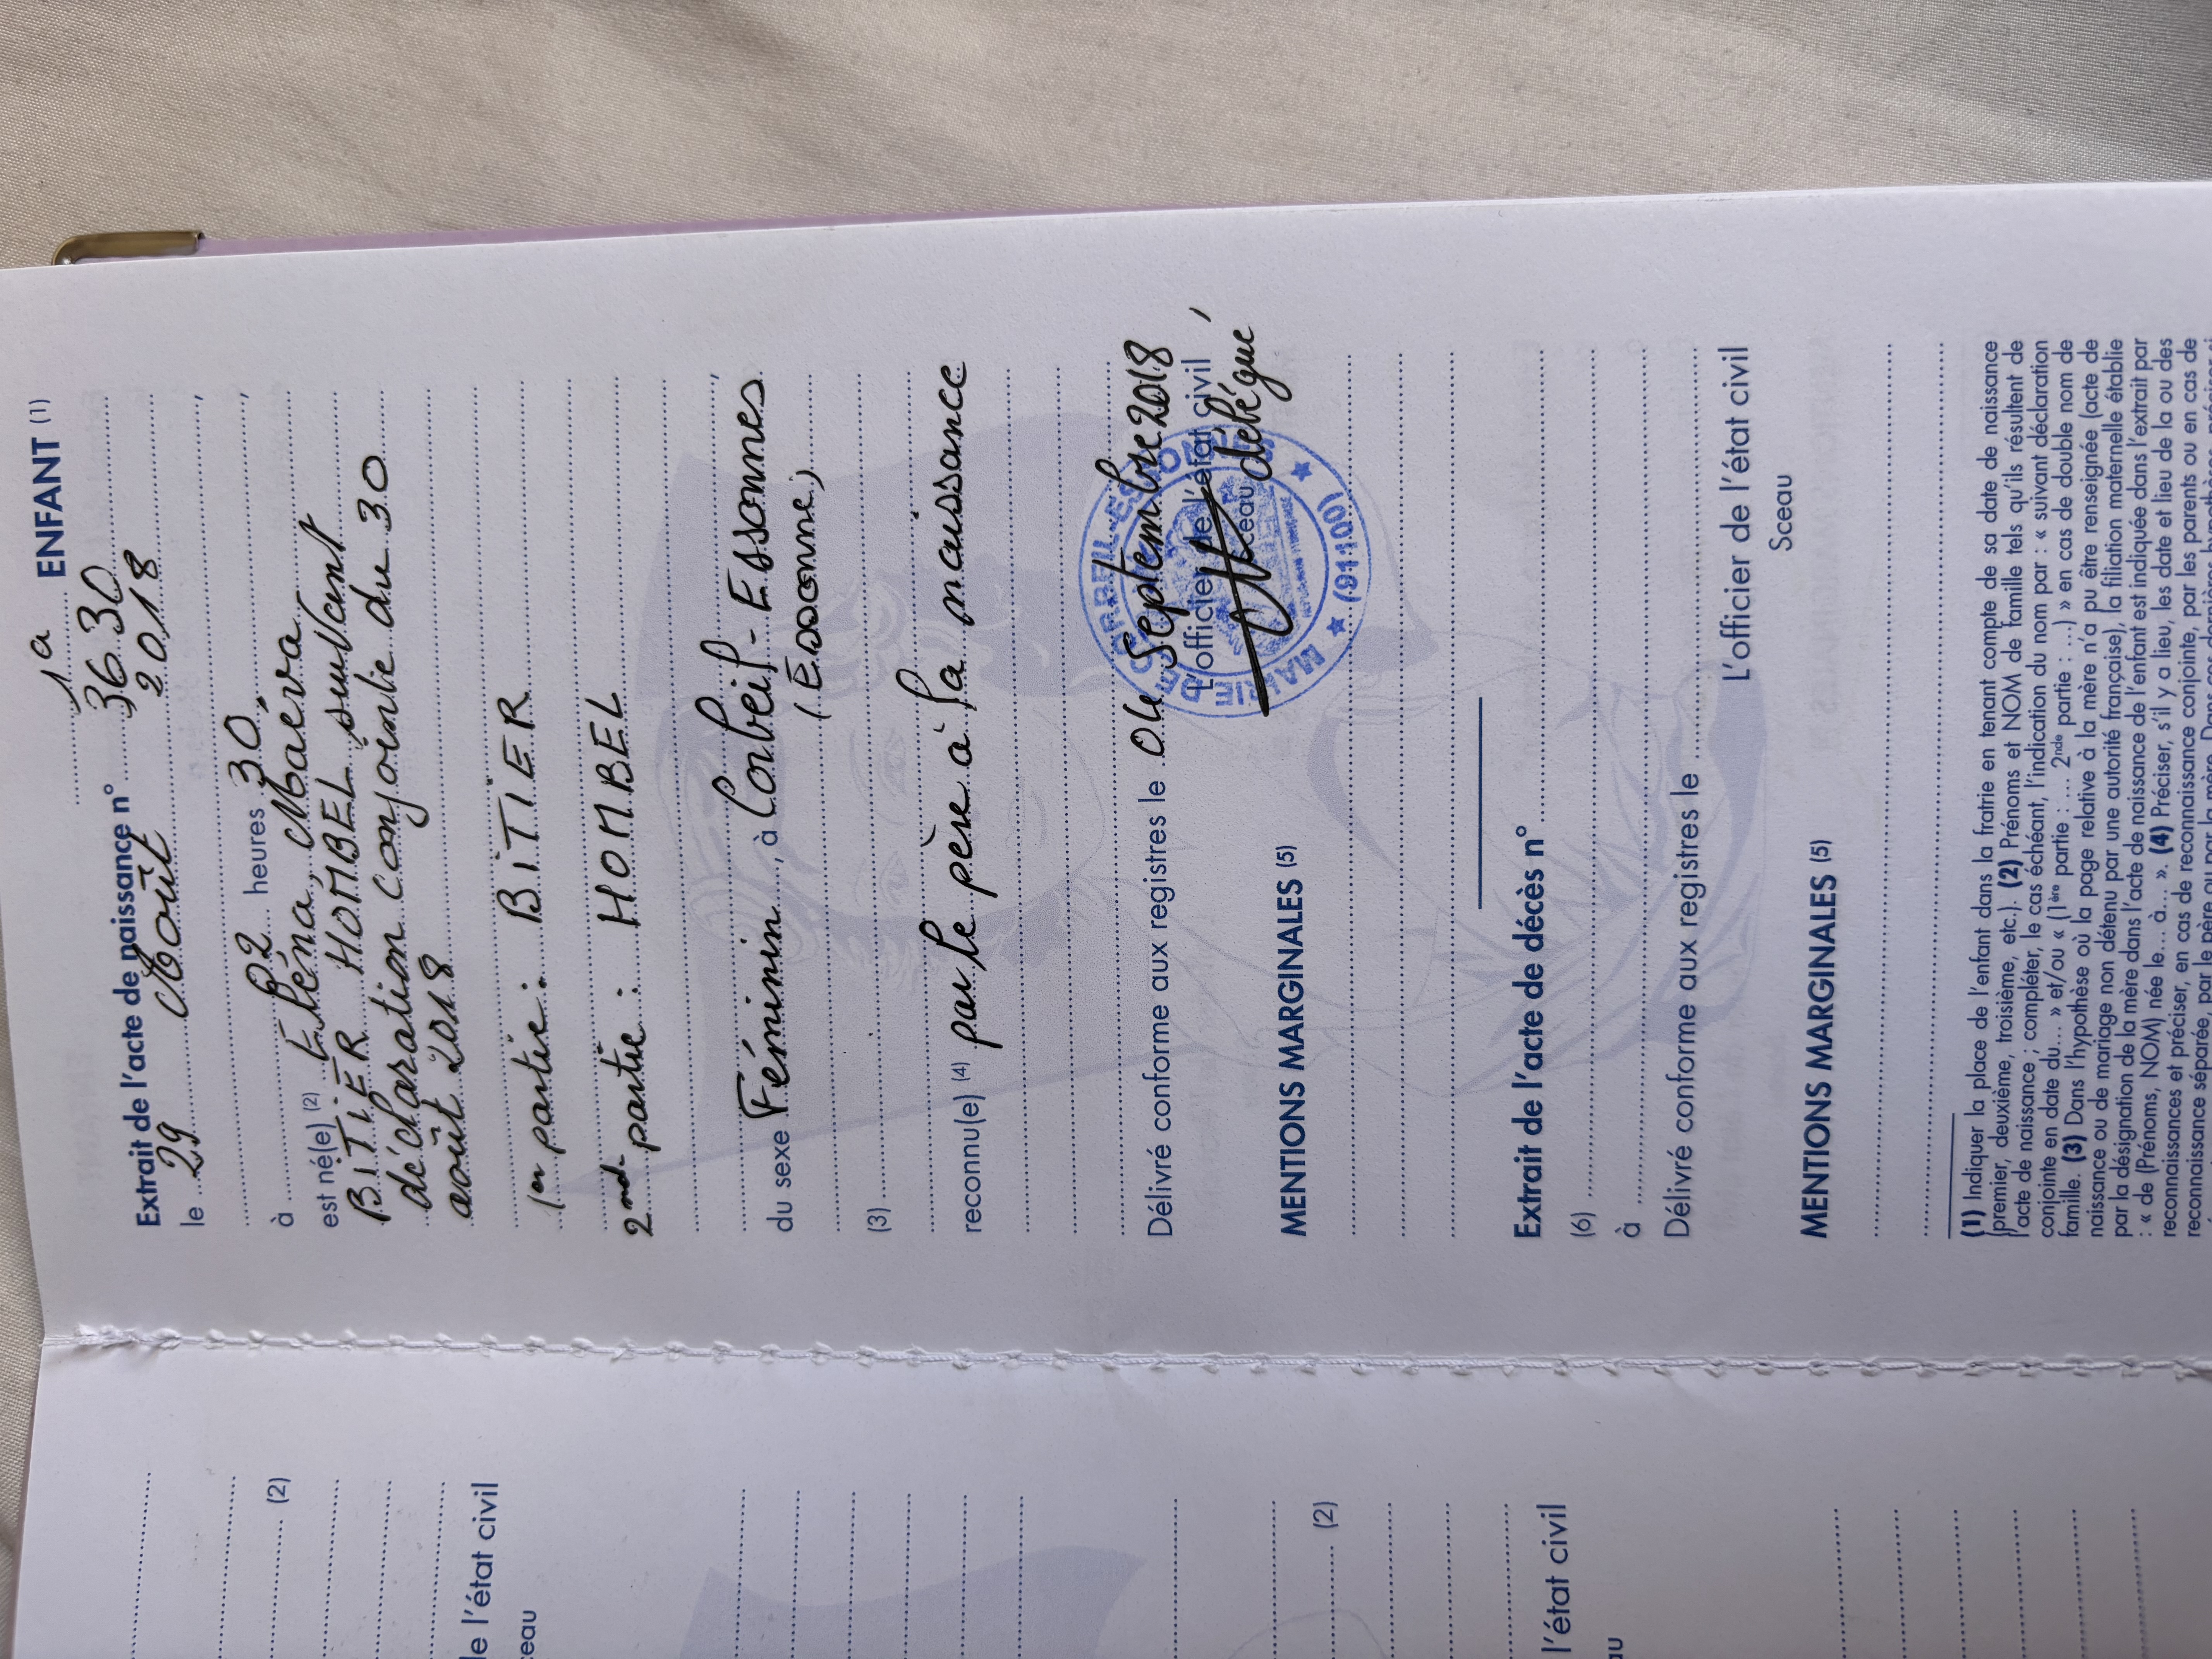 1a ENFANT (1)
Extrait de l'acte de naissance n° 3630
le 29 Août 2018,
à 02 heures 30,
est né(e) (2) Eléna, Maëva
BITIER HOMBEL suivant
déclaration conjointe du 30
août 2018
1ère partie : BITIER
2nde partie : HOMBEL
du sexe Féminin, à Corbeil-Essonnes,
(Essonne)
(3)
reconnu(e) (4) par le père à la naissance
Délivré conforme aux registres le 04 Septembre 2018
L'officier de l'état civil,
Sceau délégué
MAIRIE DE CORBEIL-ESSONNES ★ (91100) ★
MENTIONS MARGINALES (5)
Extrait de l'acte de décès n°
(6)
à
Délivré conforme aux registres le
L'officier de l'état civil
Sceau
MENTIONS MARGINALES (5)
(1) Indiquer la place de l'enfant dans la fratrie en tenant compte de sa date de naissance
(premier, deuxième, troisième, etc.). (2) Prénoms et NOM de famille tels qu'ils résultent de
l'acte de naissance ; compléter, le cas échéant, l'indication du nom par : « suivant déclaration
conjointe en date du... » et/ou « (1ère partie : .... 2nde partie : ...) » en cas de double nom de
famille. (3) Dans l'hypothèse où la page relative à la mère n'a pu être renseignée (acte de
naissance ou de mariage non détenu par une autorité française), la filiation maternelle établie
par la désignation de la mère dans l'acte de naissance de l'enfant est indiquée dans l'extrait par
: « de (Prénoms, NOM) née le... à... ». (4) Préciser, s'il y a lieu, les date et lieu de la ou des
reconnaissances et préciser, en cas de reconnaissance conjointe, par les parents ou en cas de
reconnaissance séparée, par le père ou par la mère. Dans ces dernières hypothèses, préciser si
(2)
de l'état civil
ceau
(2)
l'état civil
au